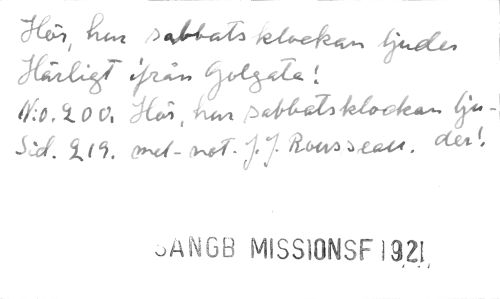 Hör, hur sabbatsklockan ljuder
Härligt ifrån Golgata!
N:o. 200. Hör, hur sabbatsklockan lju-
Sid. 219. mel-not. J. J. Rousseau. der!
SANGB MISSIONSF 1921